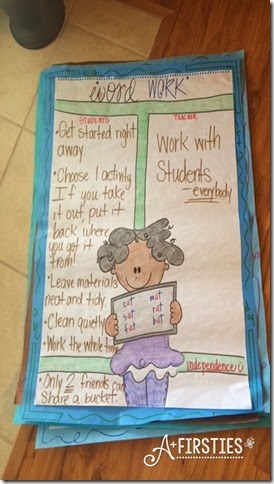 word work
STUDENTS
• Get started right
away.
• Choose 1 activity
If you take
it out, put it
back where
you got it
from!
• Leave materials
neat and tidy
• Clean quietly
• Work the whole time
• Only 2 friends can
share a bucket.
TEACHER
Work with
Students
- everybody
cat mat
sat rat
fat bat
independence
A+FIRSTIES